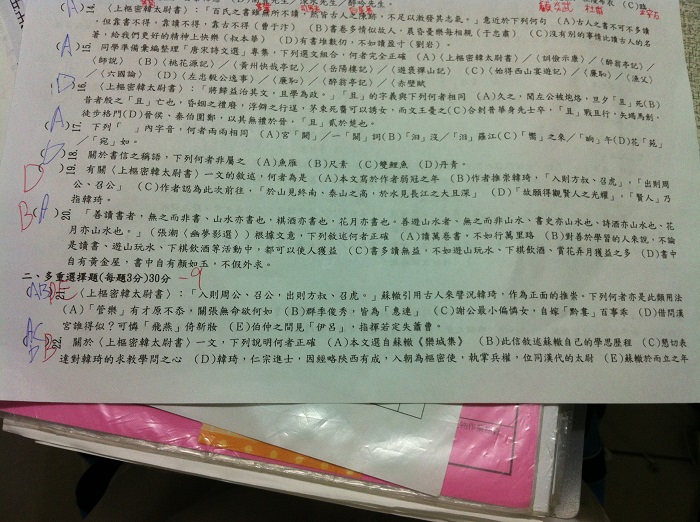 14. 〈上樞密韓太尉書〉:「百氏之書雖無所不讀,然皆古人之陳跡,不足以激發其志氣。」意近於下列何句 (A)古人之書不可多讀
,但靠書不得,靠讀不得,靠古不得(曾于汴) (B)書卷多情似故人,晨昏憂樂每相親(于忠肅) (C)沒有別的事情比讀古人的名
著,給我們更好的精神上快樂(叔本華) (D)有書堆數仞,不如讀盈寸(劉岩)。
(A)15. 同學準備彙編整理「唐宋詩文選」專集,下列選文組合,何者完全正確 (A)〈上樞密韓太尉書〉/〈訓儉示康〉/〈醉翁亭記〉/
〈師說〉 (B)〈桃花源記〉/〈黃州快哉亭記〉/〈岳陽樓記〉/〈遊褒禪山記〉 (C)〈始得西山宴遊記〉/〈廉恥〉/〈漁父〉
/〈六國論〉 (D)〈左忠毅公逸事〉/〈廉恥〉/〈醉翁亭記〉/〈赤壁賦
(D)16. 〈上樞密韓太尉書〉:「將歸益治其文,且學為政。」「且」的字義與下列何者相同 (A)久之,聞左公被炮烙,旦夕「且」死(B)
昔者殷之「且」亡也,昏姻之禮廢,淫辟之行逞,茅束死麕可以誘女,而文王憂之(C)合剉督華身先士卒,「且」戰且行,矢竭馬創,
徒步格鬥(D)晉侯、秦伯圍鄭,以其無禮於晉,「且」貳於楚也。
(A)17. 下列「 」內字音,何者兩兩相同 (A)宮「闕」/一「闕」詞(B)「汩」沒/「汨」羅江(C)「嚮」之來/「晌」午(D)花「苑」
/「宛」如。
(D)18. 關於書信之稱語,下列何者非屬之 (A)魚雁 (B)尺素 (C)雙鯉魚 (D)丹青。
D 19. 有關〈上樞密韓太尉書〉一文的敘述,何者為是 (A)本文寫於作者弱冠之年 (B)作者推崇韓琦,「入則方叔、召虎」,「出則周
公、召公」 (C)作者認為此次前往,「於山見終南、泰山之高,於水見長江之大且深」 (D)「故願得觀賢人之光耀」,「賢人」乃
指韓琦。
B(A)20. 「善讀書者,無之而非書、山水亦書也,棋酒亦書也,花月亦書也。善遊山水者、無之而非山水、書史亦山水也、詩酒亦山水也、花
月亦山水也。」(張潮〈幽夢影選〉)根據文意,下列敘述何者正確 (A)讀萬卷書,不如行萬里路 (B)對善於學習的人來說,不論
是讀書、遊山玩水、下棋飲酒等活動中,都可以使人獲益 (C)書多讀無益,不如遊山玩水、下棋飲酒、賞花弄月獲益之多 (D)書中
自有黃金屋,書中自有顏如玉,不假外求。
二、多重選擇題(每題3分)30分 -9
21. 〈上樞密韓太尉書〉:「入則周公、召公,出則方叔、召虎。」蘇轍引用古人來譬況韓琦,作為正面的推崇。下列何者亦是此類用法
(A)「管樂」有才原不忝,關張無命欲何如 (B)群季俊秀,皆為「惠連」 (C)謝公最小偏憐女,自嫁「黔婁」百事乖 (D)借問漢
宮誰得似?可憐「飛燕」倚新妝 (E)伯仲之間見「伊呂」,指揮若定失蕭曹。
22. 關於〈上樞密韓太尉書〉一文,下列說明何者正確 (A)本文選自蘇轍《欒城集》 (B)此信敘述蘇轍自己的學思歷程 (C)懇切表
達對韓琦的求教學問之心 (D)韓琦,仁宗進士,因經略陜西有成,入朝為樞密使,執掌兵權,位同漢代的太尉 (E)蘇轍於而立之年